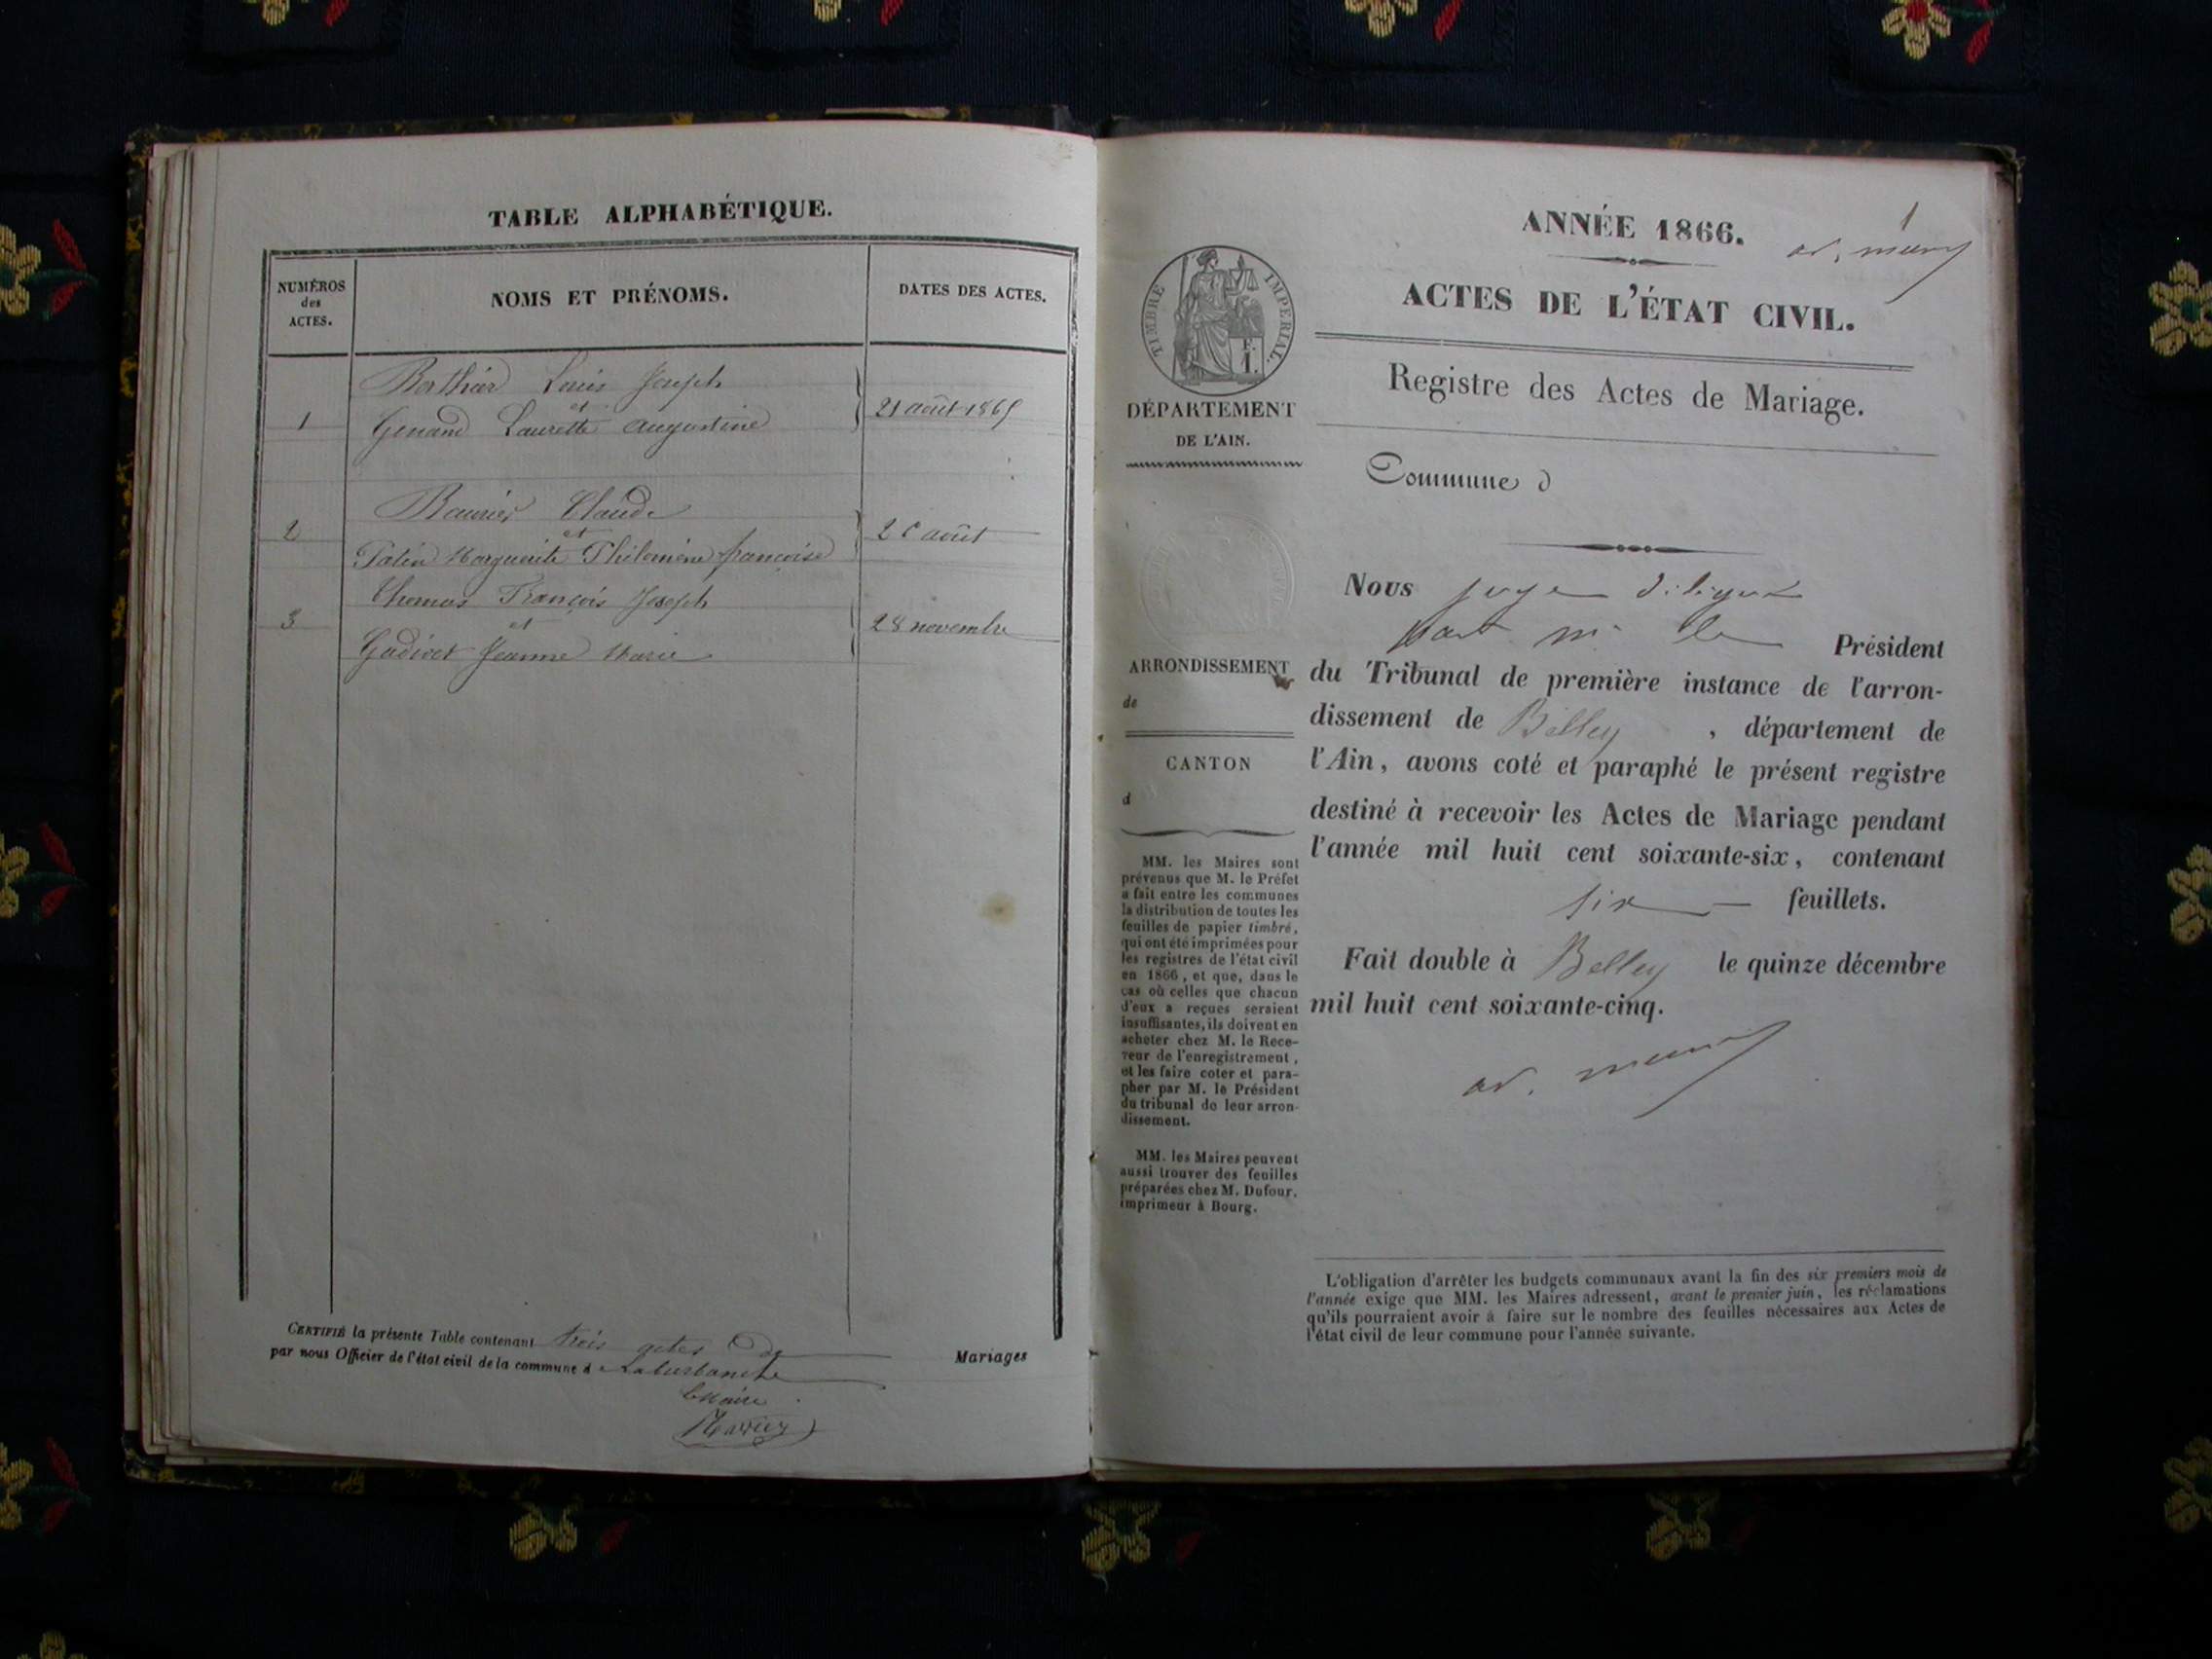 TABLE ALPHABÉTIQUE.
NUMÉROS
des
ACTES.
NOMS ET PRÉNOMS.
DATES DES ACTES.
Louis Joseph
et
1
Laurette Augustine
21 août 1865
Claude
2
et
Marguerite Philomène françoise
août
Thomas François Joseph
3
et
28 novembre
Jeanne Marie
CERTIFIÉ la présente Table contenant trois actes de Mariages
par nous Officier de l'état civil de la commune d
Le Maire
1
ANNÉE 1866.
ACTES DE L'ÉTAT CIVIL.
Registre des Actes de Mariage.
TIMBRE IMPÉRIAL.
F.
1.
DÉPARTEMENT
DE L'AIN.
ARRONDISSEMENT
de
CANTON
d
MM. les Maires sont
prévenus que M. le Préfet
a fait entre les communes
la distribution de toutes les
feuilles de papier timbré,
qui ont été imprimées pour
les registres de l'état civil
en 1866, et que, dans le
cas où celles que chacun
d'eux a reçues seraient
insuffisantes, ils doivent en
acheter chez M. le Rece-
veur de l'enregistrement,
et les faire coter et para-
pher par M. le Président
du tribunal de leur arron-
dissement.
MM. les Maires peuvent
aussi trouver des feuilles
préparées chez M. Dufour,
imprimeur à Bourg.
Commune d
Nous juge délégué
par m. le Président
du Tribunal de première instance de l'arron-
dissement de Belley, département de
l'Ain, avons coté et paraphé le présent registre
destiné à recevoir les Actes de Mariage pendant
l'année mil huit cent soixante-six, contenant
six feuillets.
Fait double à Belley le quinze décembre
mil huit cent soixante-cinq.
L'obligation d'arrêter les budgets communaux avant la fin des six premiers mois de
l'année exige que MM. les Maires adressent, avant le premier juin, les réclamations
qu'ils pourraient avoir à faire sur le nombre des feuilles nécessaires aux Actes de
l'état civil de leur commune pour l'année suivante.